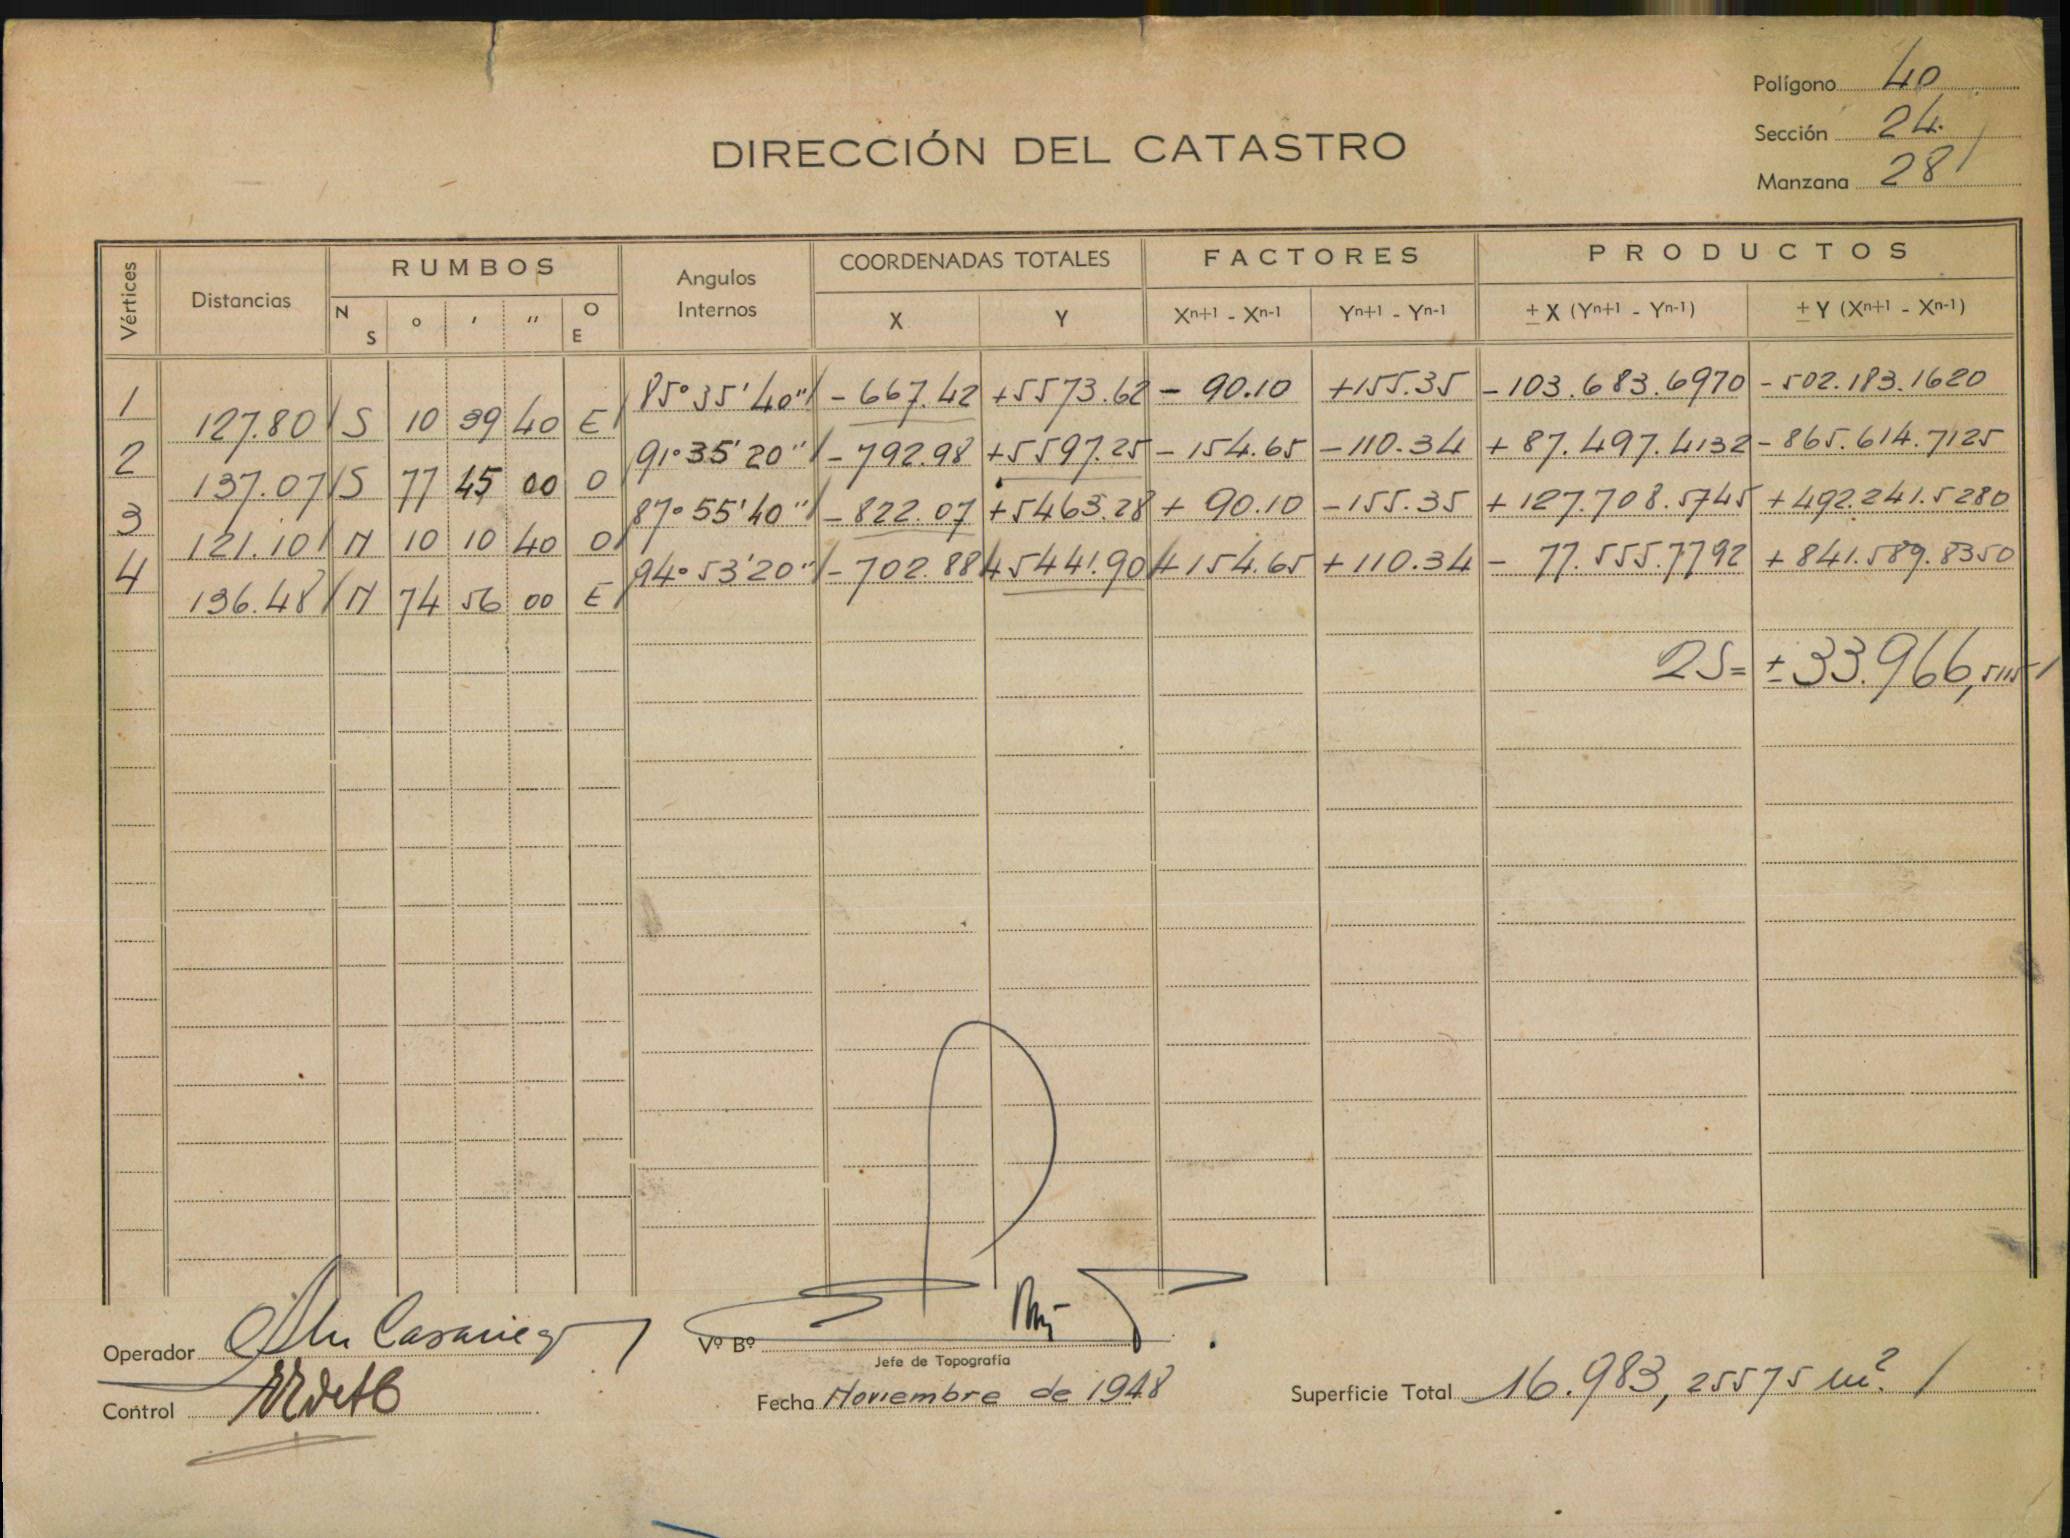 Polígono 40
Sección 24
Manzana 28
DIRECCIÓN DEL CATASTRO
Vértices Distancias RUMBOS Angulos Internos COORDENADAS TOTALES FACTORES PRODUCTOS
N S ° ' " O E X Y Xn+1 - Xn-1 Yn+1 - Yn-1 ± X (Yn+1 - Yn-1) ± Y (Xn+1 - Xn-1)
1 85° 35' 40" - 667.42 +5573.62 - 90.10 +155.35 -103.683.6970 -502.183.1620
127.80 S 10 39 40 E
2 91° 35' 20" - 792.98 +5597.25 - 154.65 -110.34 + 87.497.4132 -865.614.7125
137.07 S 77 45 00 O
3 87° 55' 40" - 822.07 +5463.28 + 90.10 -155.35 +127.708.5745 +492.241.5280
121.10 N 10 10 40 O
4 94° 53' 20" - 702.88 +5441.90 +154.65 +110.34 - 77.555.7792 +841.589.8350
136.48 N 74 56 00 E
2S= ±33.966,5115
Operador Casariego
Vº Bº
Jefe de Topografía
Control
Fecha Noviembre de 1948
Superficie Total 16.983,25575 m²